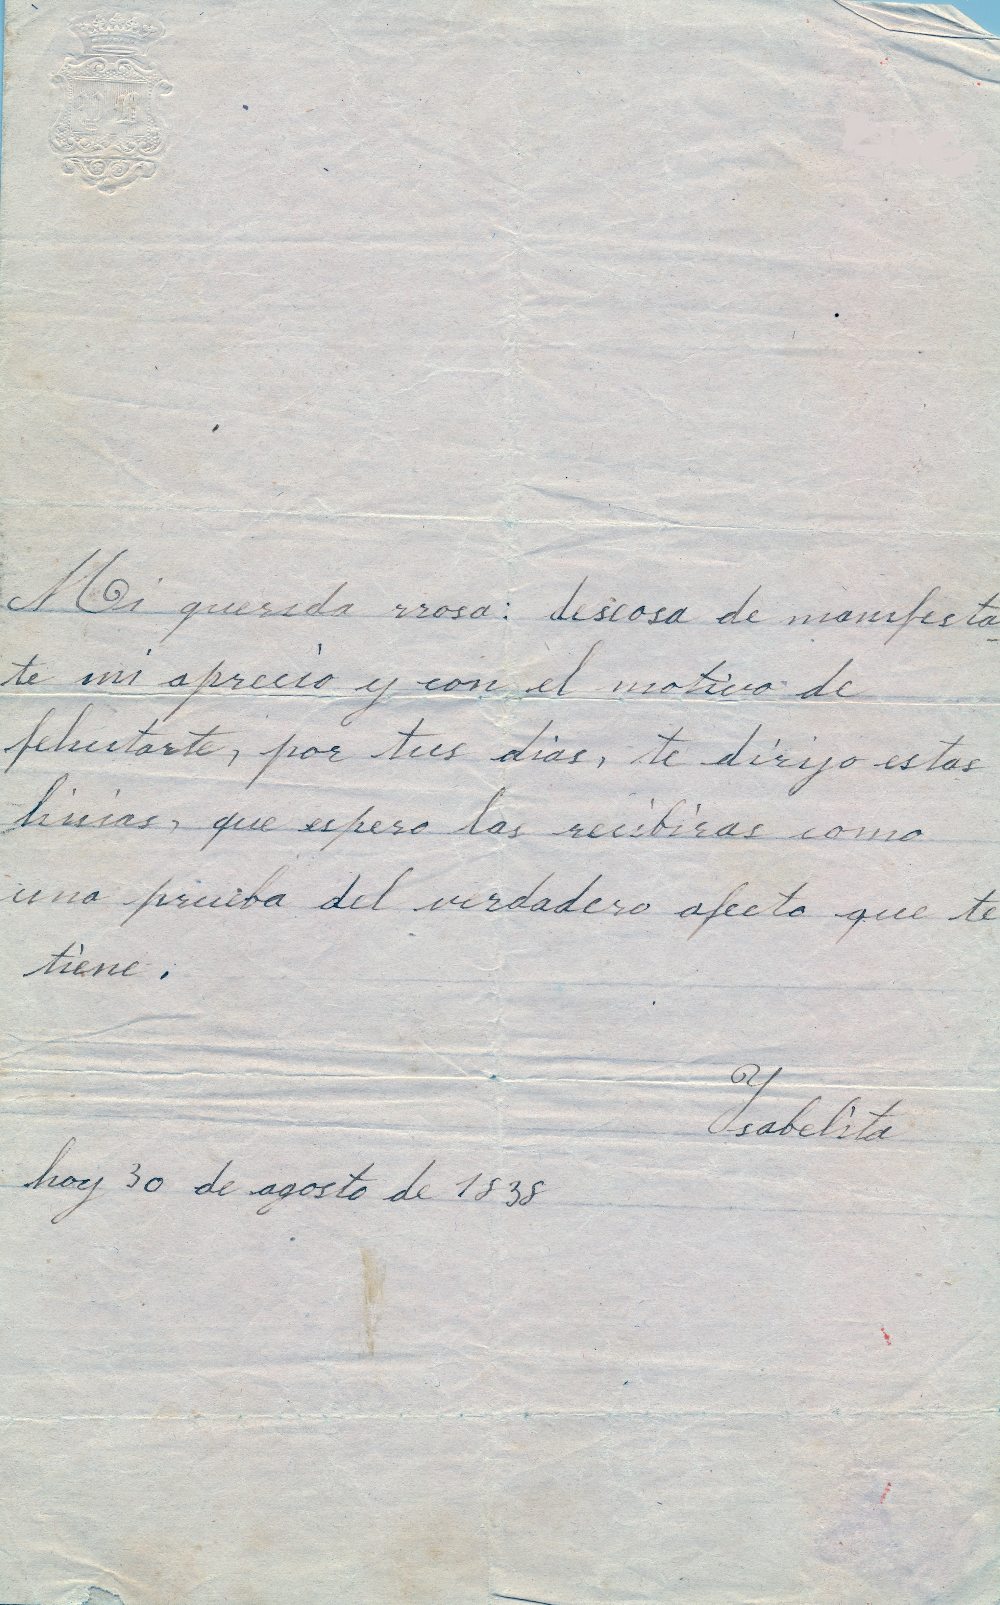 Mi querida rrosa: deseosa de manifesta-
te mi aprecio y con el motivo de
felicitarte, por tus dias, te dirijo estas
linias, que espero las recibiras como
una prueba del verdadero afecto que te
tiene.
Ysabelita
hoy 30 de agosto de 1838